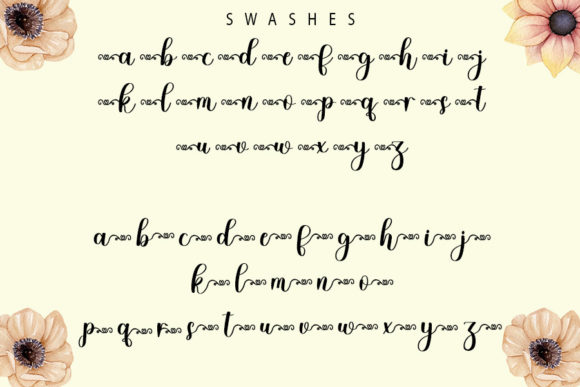 SWASHES
a b c d e f g h i j
k l m n o p q r s t
u v w x y z
a b c d e f g h i j
k l m n o
p q r s t u v w x y z